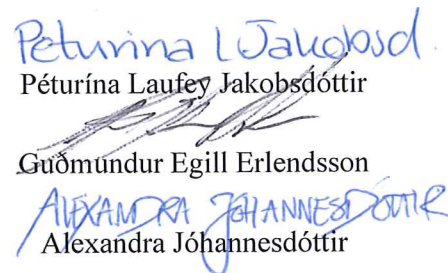 Péturina L Jakobsd.
Péturína Laufey Jakobsdóttir
Guðmundur Egill Erlendsson
ALEXANDRA JÓHANNESDÓTTIR
Alexandra Jóhannesdóttir